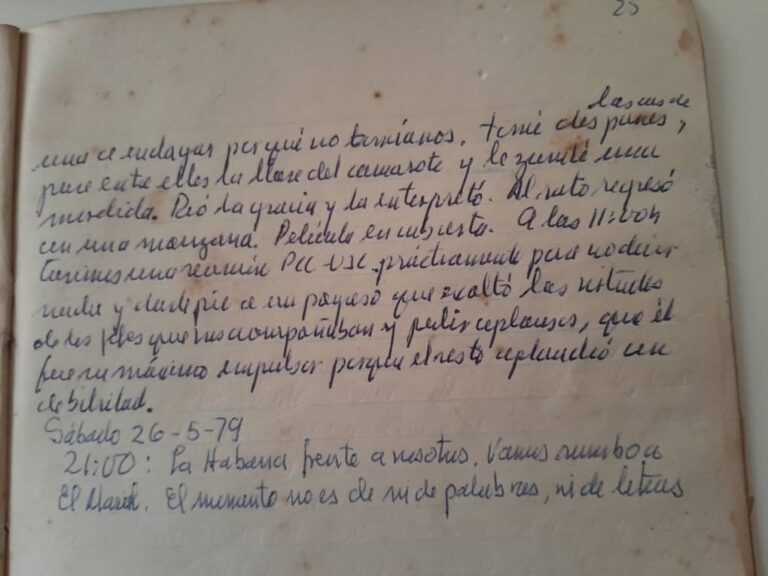 25
las cas de
una a indagar por qué no teníamos. Tomé dos panes,
puse entre ellos la llave del camarote y le zumbé una
mordida. Rió la gracia y la interpretó. Al rato regresó
con una manzana. Película en cubierta. A las 11:00h
tuvimos una reunión PCC-UJC prácticamente para no decir
nada y darle pie a un payaso que exaltó las virtudes
de los jefes que nos acompañaban y pedir aplausos, que él
fue su máximo impulsor porque el resto aplaudió con
debilidad.
Sábado 26-5-79
21:00: La Habana frente a nosotros. Vamos rumbo a
El Mariel. El momento no es de ni de palabras, ni de letras